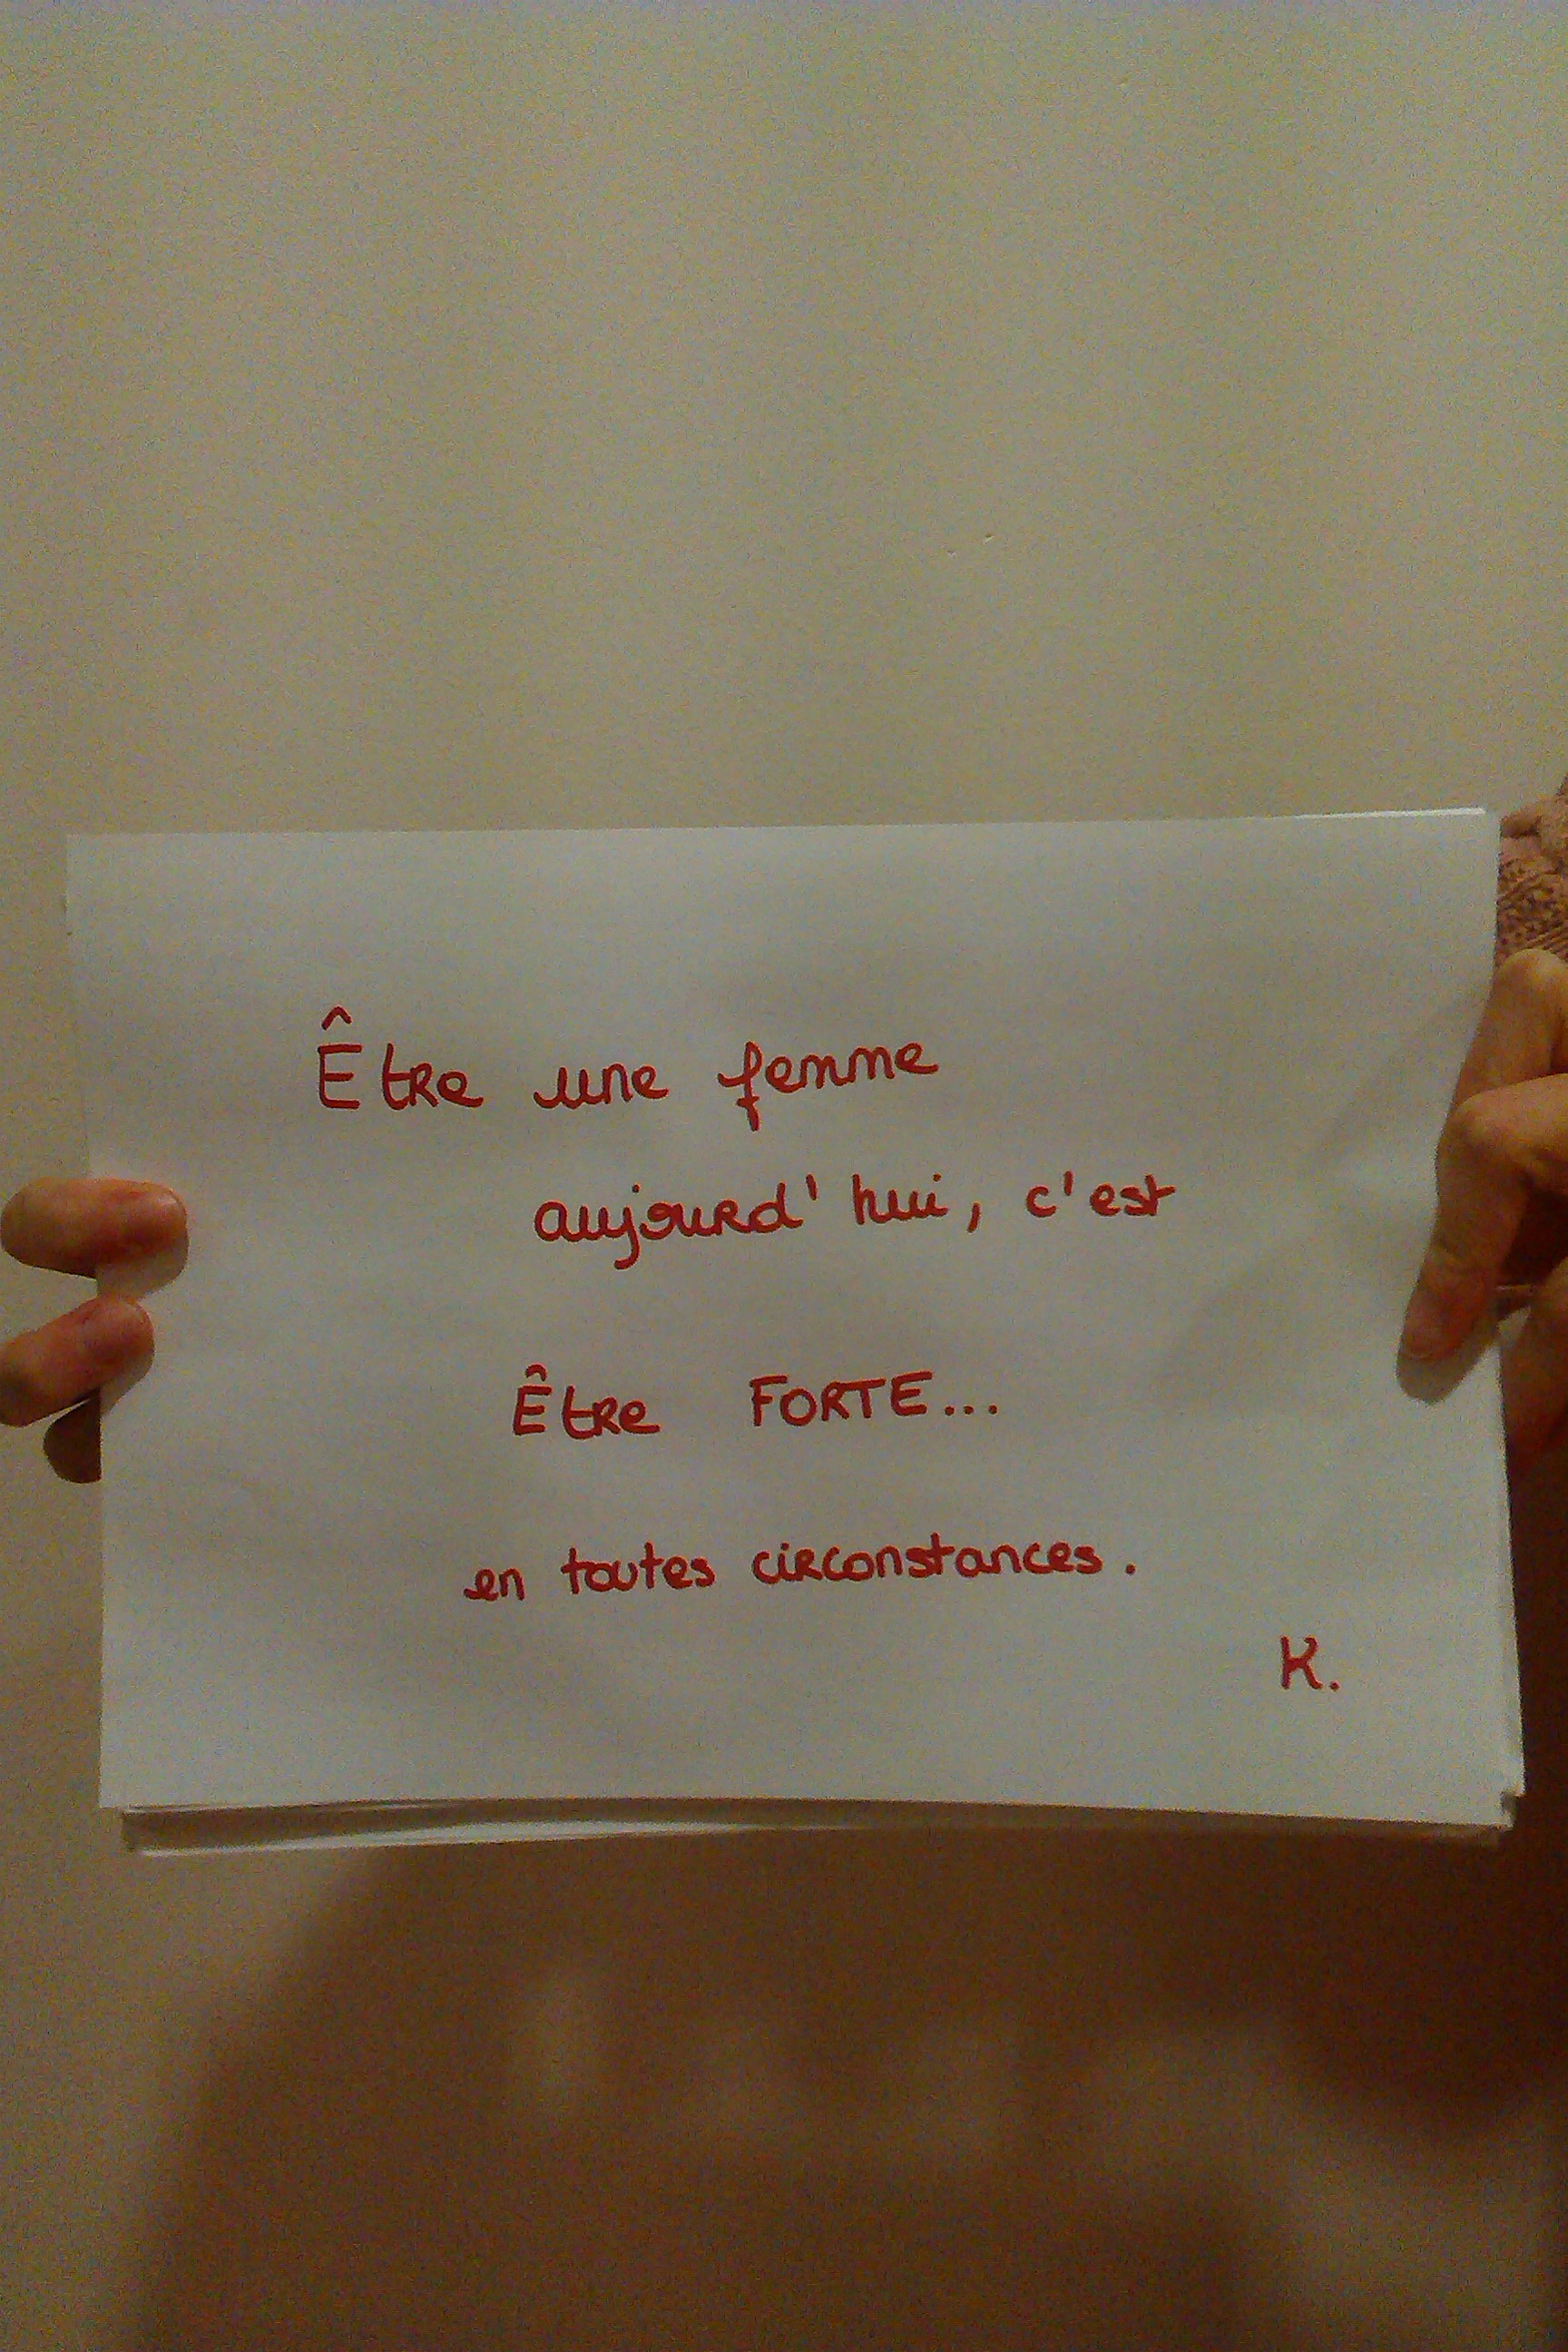 Être une femme
aujourd'hui, c'est
Être FORTE...
en toutes circonstances.
K.